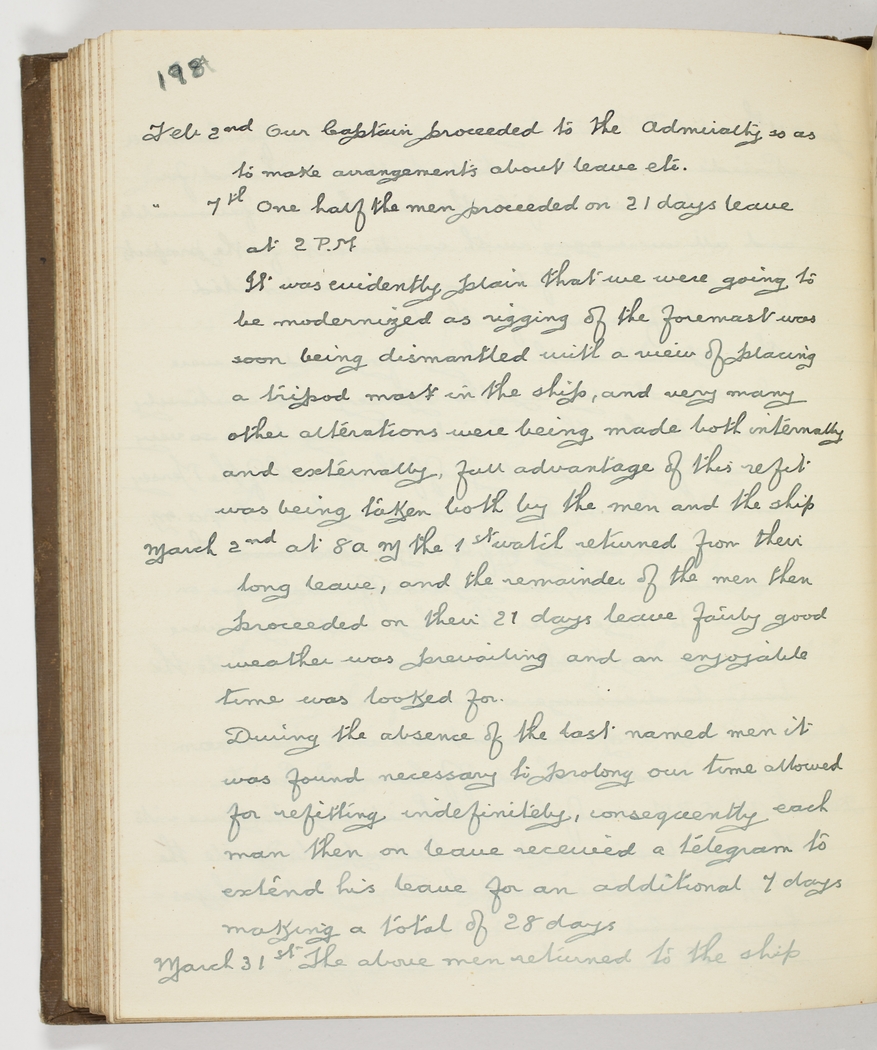 198
Feb 2nd Our Captain proceeded to the Admiralty so as
to make arrangements about leave etc.
" 7th One half the men proceeded on 21 days leave
at 2 P.M
It was evidently plain that we were going to
be modernized as rigging of the foremast was
soon being dismantled with a view of placing
a tripod mast in the ship, and very many
other alterations were being made both internally
and externally, full advantage of this refit
was being taken both by the men and the ship
March 2nd at 8 a M the 1st watch returned from their
long leave, and the remainder of the men then
proceeded on their 21 days leave fairly good
weather was prevailing and an enjoyable
time was looked for.
During the absence of the last named men it
was found necessary to prolong our time allowed
for refitting indefinitely, consequently each
man then on leave received a telegram to
extend his leave for an additional 7 days
making a total of 28 days
March 31st The above men returned to the ship